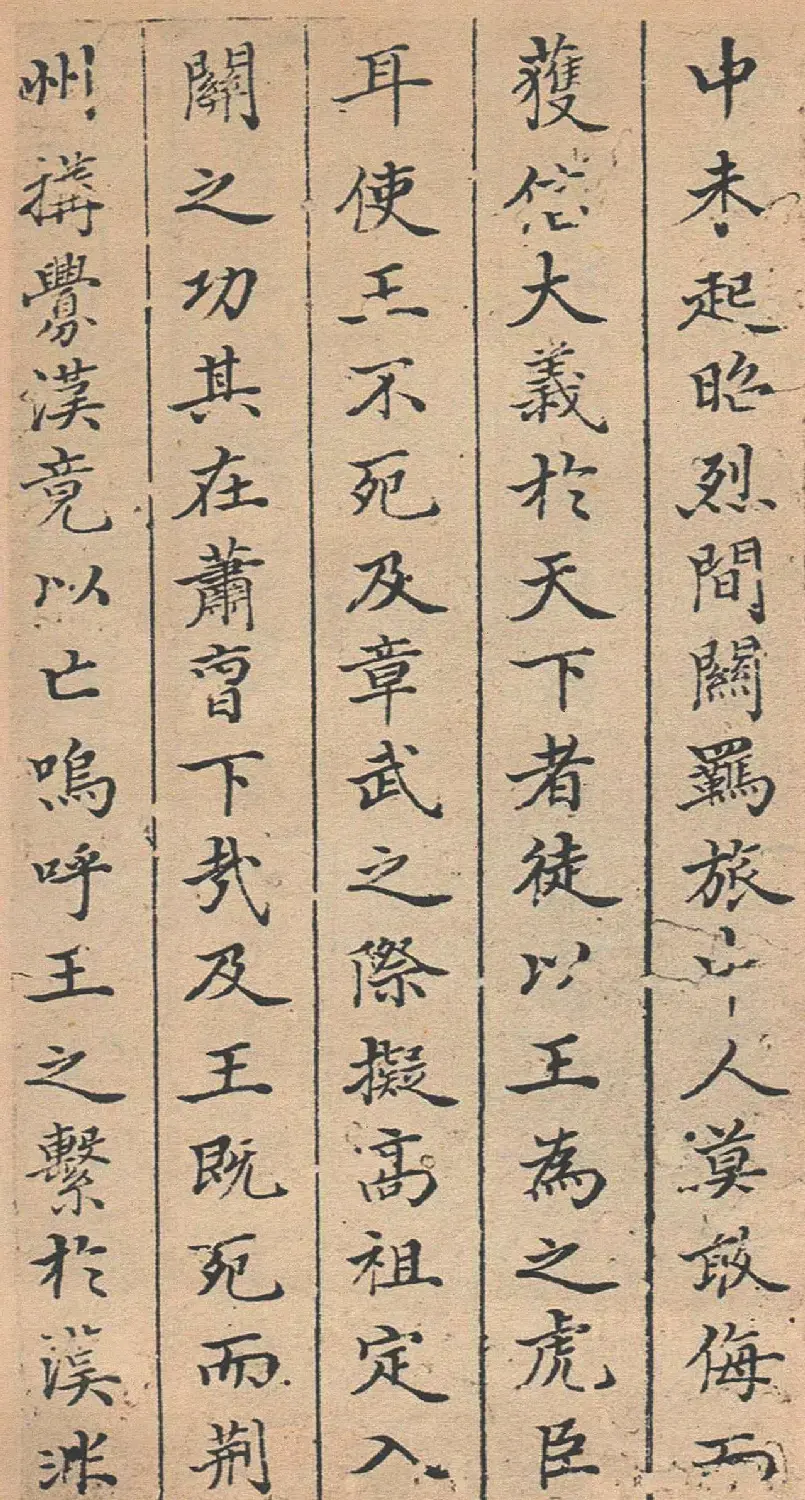 中未起昭烈間關羈旅人莫敢侮而
獲信大義於天下者徒以王為之虎臣
耳使王不死及章武之際擬高祖定入
關之功其在蕭曹下哉及王既死而荊
州搆釁漢竟以亡嗚呼王之繫於漢非